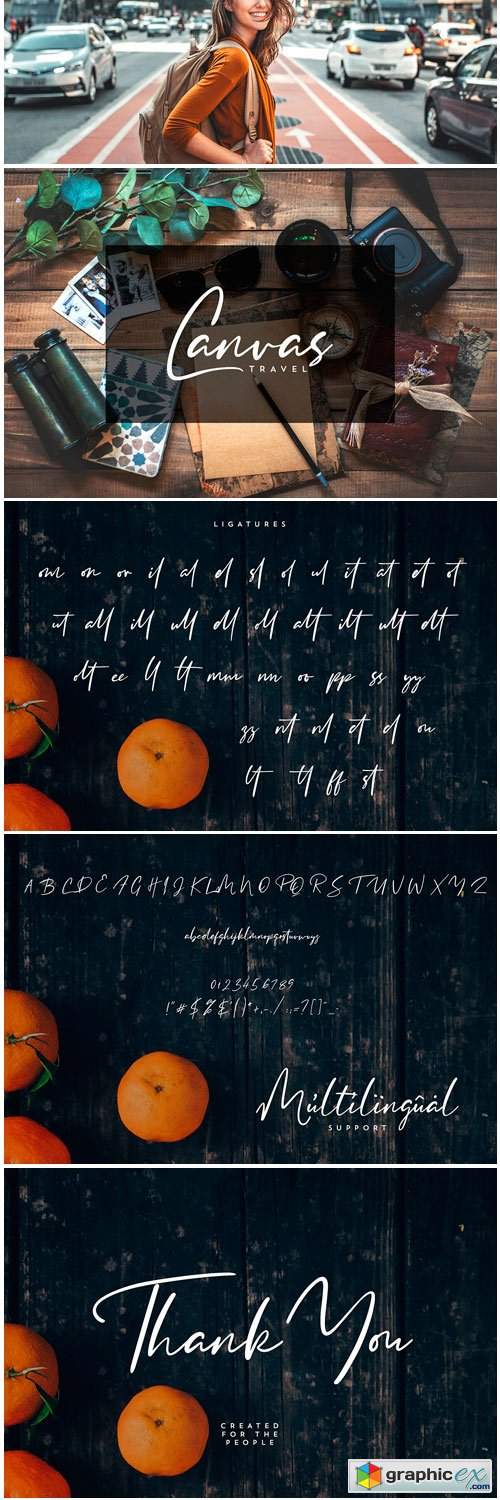 Canvas
TRAVEL
LIGATURES
om on or il al el sl ol ul it at et ot
ut all ill ull dll oll alt ilt ult dt
ee ll tt mm nn oo pp ss yy
zz nt nl ct cl ou
lt tl ff st
A B C D E F G H I J K L M N O P Q R S T U V W X Y Z
abcdefghijklmnopqrstuvwxyz
0123456789
Múltílïngûàl
SUPPORT
Thank You
CREATED
FOR THE
PEOPLE
graphicex.com